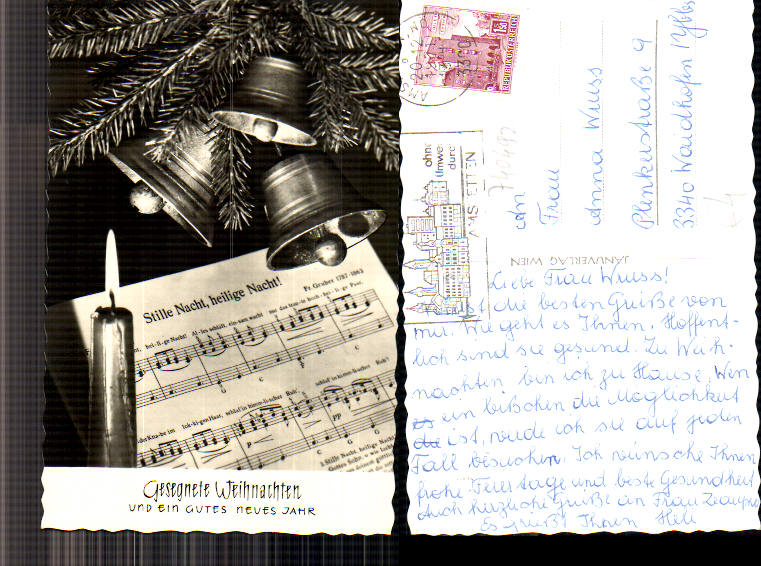 Stille Nacht, heilige Nacht!
Fr. Gruber 1787-1863
Gesegnete Weihnachten
UND EIN GUTES NEUES JAHR
REPUBLIK ÖSTERREICH
ohne
Umwe
durch
AMSTETTEN
An
Frau
Anna Wruss
Plenkerstraße 9
3340 Waidhofen Ybbs
JANUVERLAG WIEN
Liebe Frau Wruss!
ist die besten Grüße von
mir. Wie geht es Ihnen. Hoffent-
lich sind sie gesund. Zu Weih-
nachten bin ich zu Hause, Wen
es ein bißchen die Möglichkeit
die ist, werde ich sie auf jeden
Fall besuchen. Ich wünsche Ihnen
frohe Feiertage und beste Gesundheit
Auch herzliche Grüße an Frau
Es grüßt Ihnen Heli